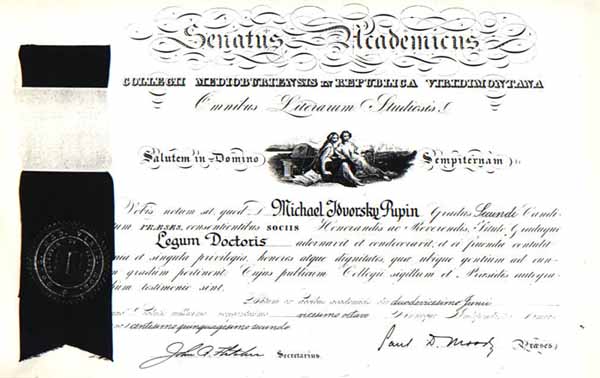 Senatus Academicus
COLLEGII MEDIOBURIENSIS IN REPUBLICA VIRIDIMONTANA
Omnibus Literarum Studiosis
Salutem in Domino Sempiternam
Vobis notum sit, quod Michael Idvorsky Pupin Gradus Secundi Candi-
PRÆSES, consentientibus SOCIIS Honorandis ac Reverendis, Titulo Graduque
Legum Doctoris adornavit et condecoravit, et ei fruenda contulit
et singula privilegia, honores atque dignitates, quæ ubique gentium ad eun-
gradum pertinent. Cujus publicum Collegii sigillum et Præsidis autogra-
testimonio sint.
academicis die duodevicesimo Junii
vicesimo octavo
centesimo quinquagesimo secundo
Secretarius. Paul D. Moody Præses